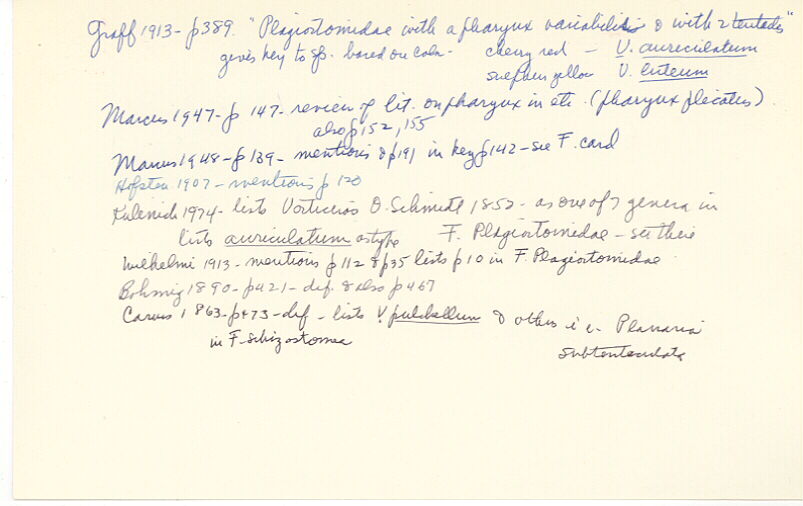 Graff 1913 - p389. "Plagiostomidae with a pharynx variabilis & with 2 tentacles"
gives key to sp. based on color - cherry red - V. auriculatum
sulphur yellow V. luteum
Marcus 1947 - p 147 - review of lit. on pharynx in etc. (pharynx plicatus)
also p152, 155
Marcus 1948 - p 139 - mentions & p191 in key p142 - see F. card
Hofsten 1907 - mentions p 120
1974 - lists Vorticeros O. Schmidt 1852 - as one of 7 genera in
lists auriculatum as type F. Plagiostomidae - see there
Wilhelmi 1913 - mentions p 112 & p35 lists p10 in F. Plagiostomidae
Bohmig 1890 - p421 - dif. & also p467
Carus 1863 - p473 - def - lists V. pulchellum & others i.e. Planaria
in F. Schizostomea
subtentaculata